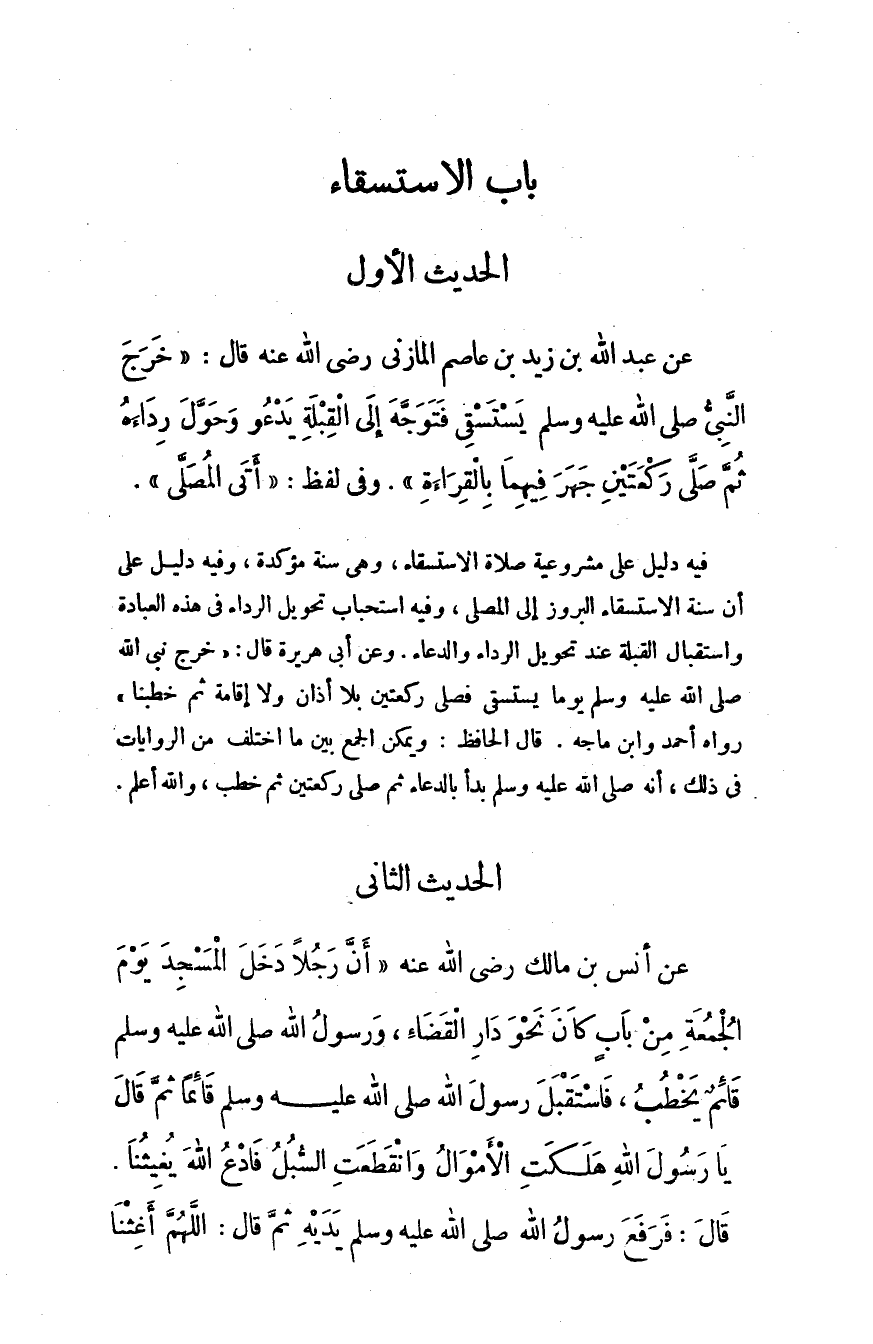 باب الاستسقاء
الحديث الأول
عن عبد الله بن زيد بن عاصم المازنى رضى الله عنه قال : « خَرَجَ
النَّبِىُّ صلى الله عليه وسلم يَسْتَسْقِى فَتَوَجَّهَ إِلَى الْقِبْلَةِ يَدْعُو وَحَوَّلَ رِدَاءَهُ
ثُمَّ صَلَّى رَكْعَتَيْنِ جَهَرَ فِيهِمَا بِالْقِرَاءَةِ » . وفى لفظ : « أَتَى المُصَلَّى » .
فيه دليل على مشروعية صلاة الاستسقاء ، وهى سنة مؤكدة ، وفيه دليل على
أن سنة الاستسقاء البروز إلى المصلى ، وفيه استحباب تحويل الرداء فى هذه العبادة
واستقبال القبلة عند تحويل الرداء والدعاء . وعن أبى هريرة قال : « خرج نبى الله
صلى الله عليه وسلم يوما يستسقى فصلى ركعتين بلا أذان ولا إقامة ثم خطبنا »
رواه أحمد وابن ماجه . قال الحافظ : ويمكن الجمع بين ما اختلف من الروايات
فى ذلك ، أنه صلى الله عليه وسلم بدأ بالدعاء ثم صلى ركعتين ثم خطب ، والله أعلم .
الحديث الثانى
عن أنس بن مالك رضى الله عنه « أَنَّ رَجُلاً دَخَلَ الْمَسْجِدَ يَوْمَ
الْجُمُعَةِ مِنْ بَابٍ كَانَ نَحْوَ دَارِ الْقَضَاءِ ، وَرسولُ الله صلى الله عليه وسلم
قَائمٌ يَخْطُبُ ، فَاسْتَقْبَلَ رسولَ الله صلى الله عليه وسلم قَائِمًا ثمَّ قَالَ
يَا رَسُولَ اللهِ هَلَكَتِ الْأَمْوَالُ وَانْقَطَعَتِ السُّبُلُ فَادْعُ اللهَ يُغِيثُنَا .
قَالَ : فَرَفَعَ رسولُ الله صلى الله عليه وسلم يَدَيْهِ ثمَّ قال : اللَّهُمَّ أَغِثْنَا